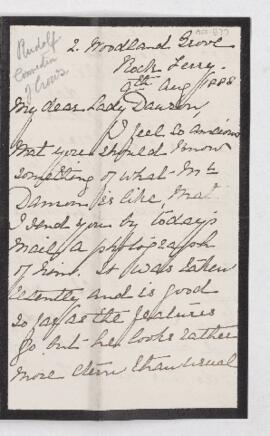 2. Woodland Grove
Rock Ferry.
9th Aug/1888
My dear Lady Dawson,
I feel so anxious
that you should know
something of what Mr
is like, that
I send you by today's
mail a photograph
of him. It was taken
lately and is good
so far as the features
go but he looks rather
more stern than usual